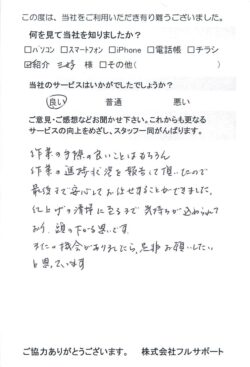 この度は、当社をご利用いただき有り難うございました。
何を見て当社を知りましたか?
□パソコン □スマートフォン □iPhone □電話帳 □チラシ
☑紹介 様 □その他( )
当社のサービスはいかがでしたでしょうか?
良い 普通 悪い
ご意見・ご感想などお聞かせ下さい。これからも更なる
サービスの向上をめざし、スタッフ一同がんばります。
作業の手際の良いことはもちろん
作業の進捗状況を報告して頂いたので
最後まで安心しておまかせすることができました。
仕上げの清掃に至るまで気持ちが込められて
おり、頭の下がる思いです。
またの機会がありましたら、是非お願いしたい
と思っています
ご協力ありがとうございます。 株式会社フルサポート